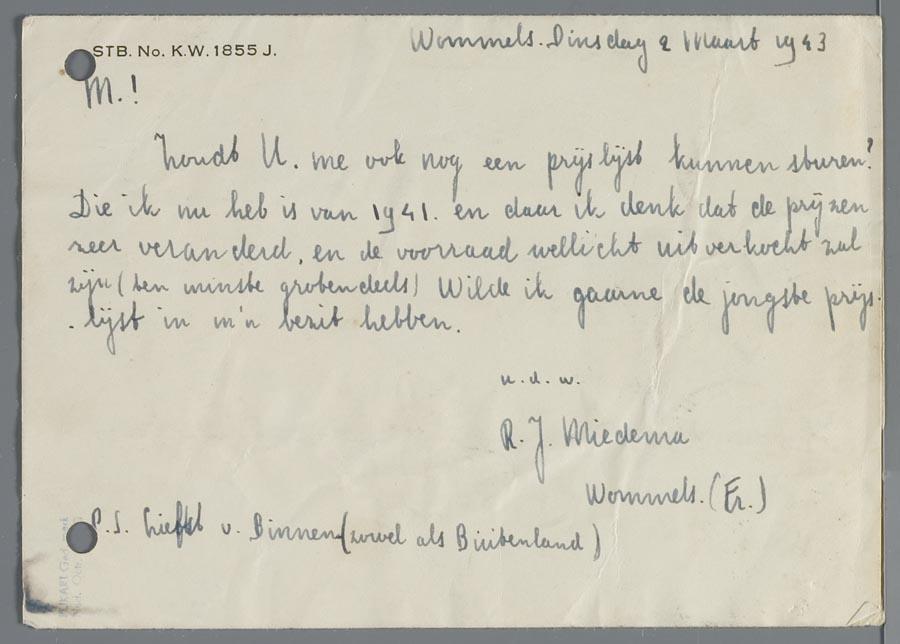 STB. No. K.W. 1855 J.
Wommels. Dinsdag 2 Maart 1943
M.!
Zoudt U. me ook nog een prijslijst kunnen sturen?
Die ik nu heb is van 1941. en daar ik denk dat de prijzen
zeer veranderd, en de voorraad wellicht uitverkocht zal
zijn (ten minste grotendeels) Wilde ik gaarne de jongste prijs-
-lijst in m'n bezit hebben.
u. d. w.
R. J. Miedema
Wommels. (Fr.)
P.S. Liefst v. Binnen (zowel als Buitenland)